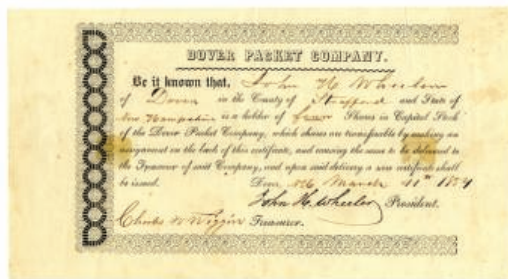 DOVER PACKET COMPANY.
Be it known that, John H Wheeler
of Dover in the County of Strafford and State of
New Hampshire is a holder of Shares in Capital Stock
of the Dover Packet Company, which shares are transferable by making an
assignment on the back of this certificate, and causing the same to be delivered to
the Treasurer of said Company, and upon said delivery a new certificate shall
be issued. Dover, NH March 11th
John H. Wheeler President.
Charles W Wiggin Treasurer.